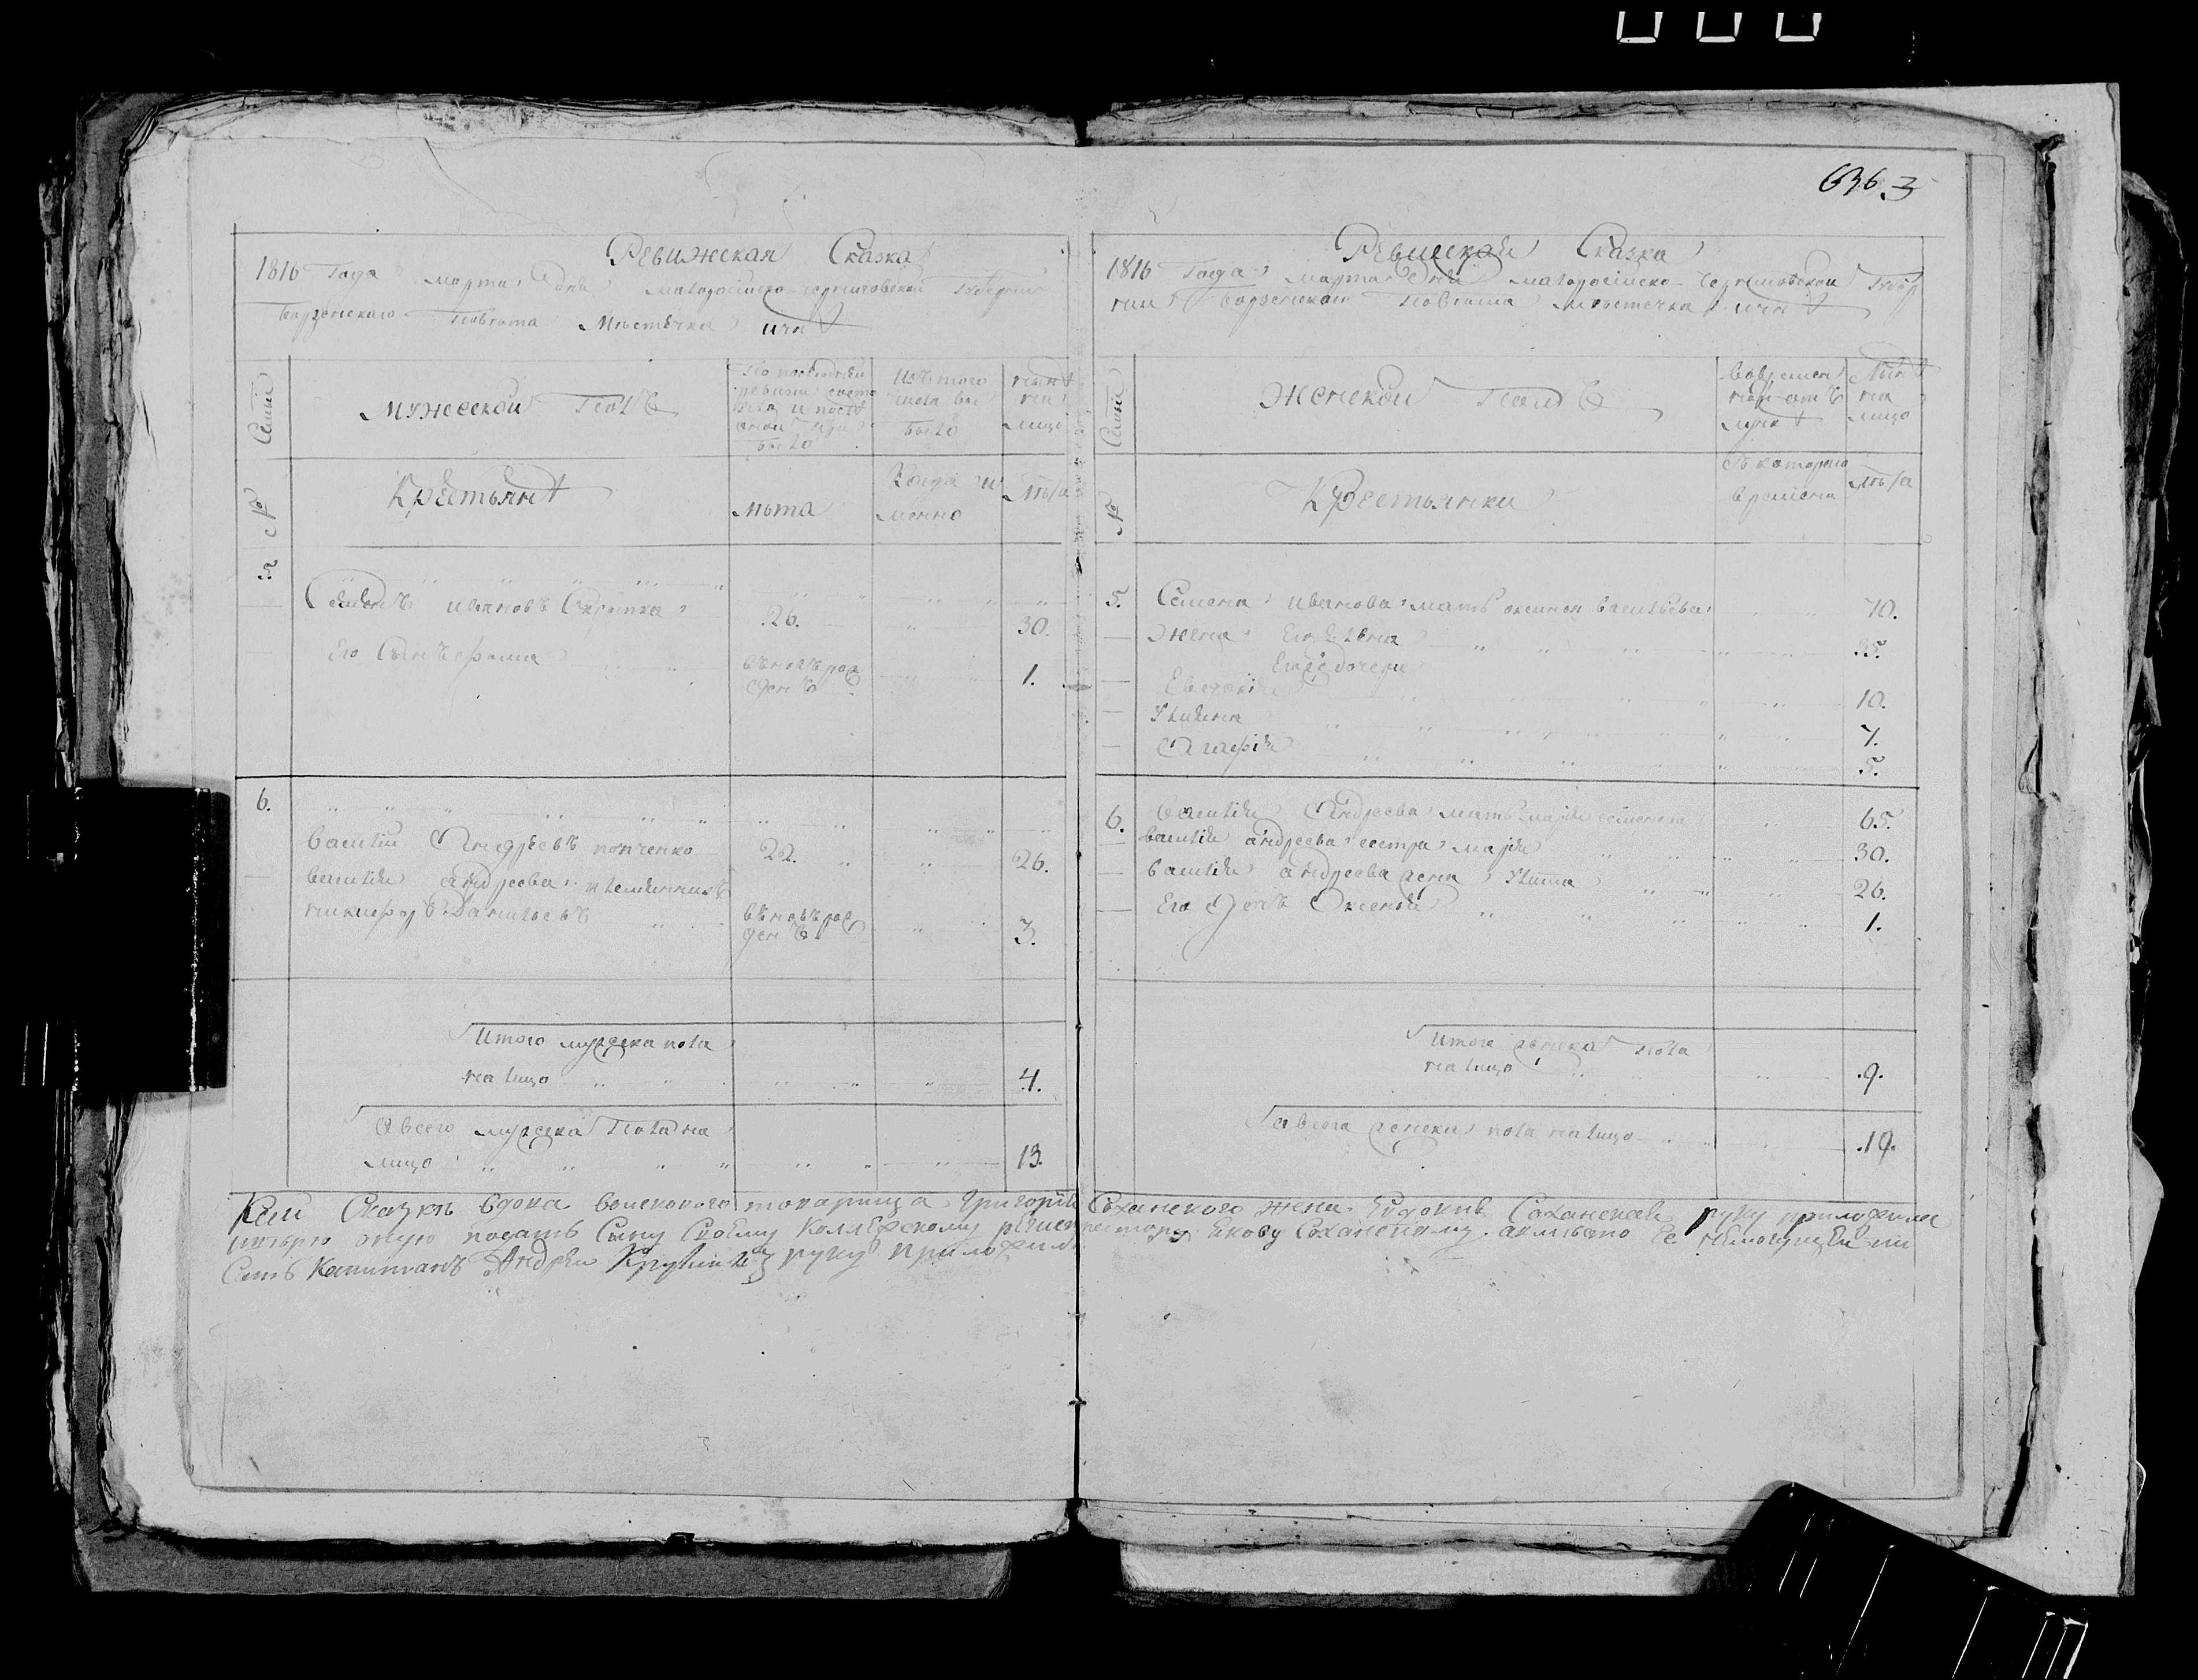 636. 3
Ревижская Сказка
1816 Года марта дня малоросійско-черниговской губерніи
Борзенскаго Повѣта Мѣстечка ични
Семьи
мужескои Полъ
По последней ревизіи состояло и после оной прибыло
Изъ того числа выбыло
нынѣ на лицо
№
Крестьянѣ
лѣта
Когда именно
лѣта
5.
Семенъ ивановъ Скрыпка 26. 30.
Его Сынъ фома вновь рожденъ 1.
6.
василій Андреевъ попченко 22. 26.
василія андреева племянникъ
никифоръ Даниловъ вновь рожденъ 3.
Итого мужеска пола
на лицо 4.
А всего мужеска Пола на
лицо 13.
Ревижская Сказка
1816 Года марта дня малоросійско-Черниговской Губер
ніи борзенскаго Повѣта мѣстечка ични
Семьи
Женской Полъ
Вовременной отлучкѣ
Нынѣ на лицо
№
Крестьянки
Съ котораго времени
лѣта
5. Семена иванова мать оксинія васильева 70.
жена Его Елена 35.
Его дочери
Евдокія 10.
Ульяна 7.
Агафія 5.
6. василія Андреева мать марія семенова 65.
василія андреева сестра марія 30.
василія андреева жена Улита 26.
Его дочь Оксенія 1.
Итого женска Пола
на лицо .9.
а всего женска пола на лицо .19.
Сей Сказкѣ вдова войскового товарища Григорія Соханского жена Евдокия Соханская руку приложила
подать Сыну Своему Коллежскому регистратору Якову Соханскому. а вмѣсто Ее неумеющей пи
сать Капитанъ Андрей руку приложилъ